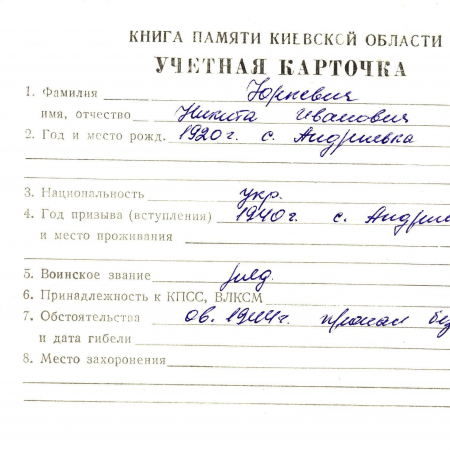 КНИГА ПАМЯТИ КИЕВСКОЙ ОБЛАСТИ
УЧЕТНАЯ КАРТОЧКА
1. Фамилия Юркевич
имя, отчество Никита Иванович
2. Год и место рожд. 1920г. с. Андриевка
3. Национальность укр.
4. Год призыва (вступления) 1940г. с. Андрие
и место проживания
5. Воинское звание ряд.
6. Принадлежность к КПСС, ВЛКСМ
7. Обстоятельства 08.1944г. пропал без
и дата гибели
8. Место захоронения